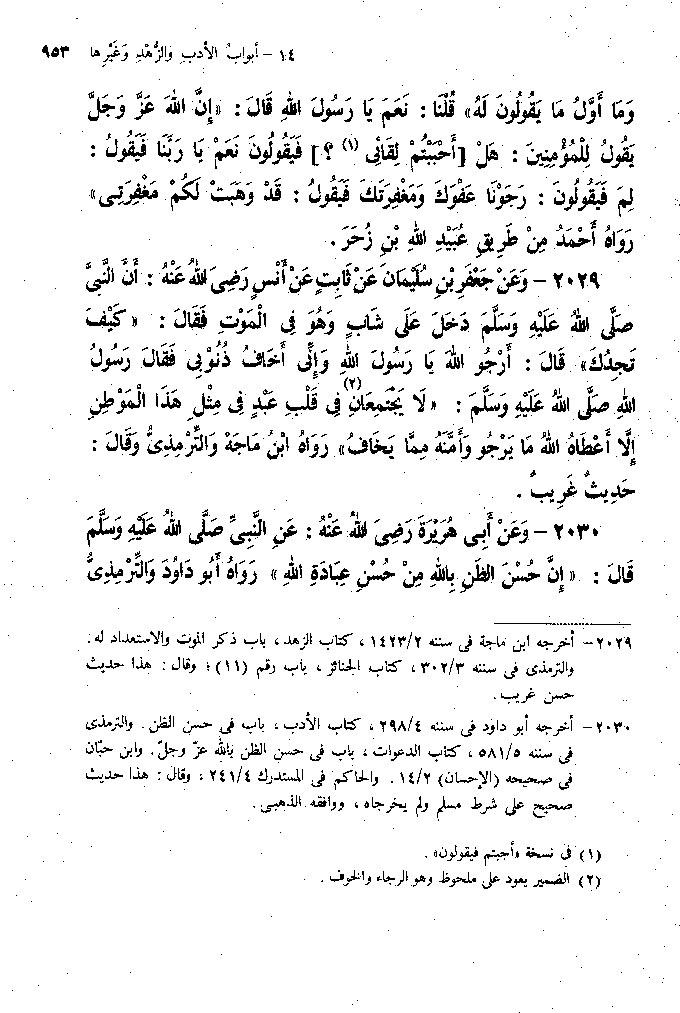 ١٤ - أبوابُ الأدبِ والزُّهْدِ وَغَيْرِها ٩٥٣
وَمَا أَوَّلُ مَا يَقُولُونَ لَهُ» قُلْنَا : نَعَمْ يَا رَسُولَ اللهِ قَالَ : «إِنَّ اللهَ عَزَّ وَجَلَّ
يَقُولُ لِلْمُؤْمِنِينَ : هَلْ [أَحْبَبْتُمْ لِقَائِى (١) ؟] فَيَقُولُونَ نَعَمْ يَا رَبَّنَا فَيَقُولُ :
لِمَ فَيَقُولُونَ : رَجَوْنَا عَفْوَكَ وَمَغْفِرَتَكَ فَيَقُولُ : قَدْ وَهَبَتْ لَكُمْ مَغْفِرَتِى»
رَوَاهُ أَحْمَدُ مِنْ طَرِيقِ عُبَيْدِ اللهِ بْنِ زُحَرَ .
٢٠٢٩ - وَعَنْ جَعْفَرِ بْنِ سُلَيْمَانَ عَنْ ثَابِتٍ عَنْ أَنَسٍ رَضِىَ اللهُ عَنْهُ : أَنَّ النَّبِىَّ
صَلَّى اللهُ عَلَيْهِ وَسَلَّمَ دَخَلَ عَلَى شَابٍ وَهُوَ فِى الْمَوْتِ فَقَالَ : «كَيْفَ
تَجِدُكَ» قَالَ : أَرْجُو اللهَ يَا رَسُولَ اللهِ وَإِنِّى أَخَافُ ذُنُوبِى فَقَالَ رَسُولُ
اللهِ صَلَّى اللهُ عَلَيْهِ وَسَلَّمَ : «لَا يَجْتَمِعَانِ(٢) فِى قَلْبِ عَبْدٍ فِى مِثْلِ هَذَا الْمَوْطِنِ
إِلَّا أَعْطَاهُ اللهُ مَا يَرْجُو وَأَمَّنَهُ مِمَّا يَخَافُ» رَوَاهُ ابْنُ مَاجَهْ وَالتِّرْمِذِىُّ وَقَالَ :
حَدِيثٌ غَرِيبٌ .
٢٠٣٠ - وَعَنْ أَبِى هُرَيْرَةَ رَضِىَ اللهُ عَنْهُ : عَنِ النَّبِىِّ صَلَّى اللهُ عَلَيْهِ وَسَلَّمَ
قَالَ : «إِنَّ حُسْنَ الظَّنِ بِاللهِ مِنْ حُسْنِ عِبَادَةِ اللهِ» رَوَاهُ أَبُو دَاوُدَ وَالتِّرْمِذِىُّ
٢٠٢٩ - أخرجه ابن ماجة فى سننه ١٤٢٣/٢ ، كتاب الزهد ، باب ذكر الموت والاستعداد له .
والترمذى فى سننه ٣٠٢/٣ ، كتاب الجنائز ، باب رقم (١١) ؛ وقال : هذا حديث
حسن غريب .
٢٠٣٠ - أخرجه أبو داود فى سننه ٢٩٨/٤ ، كتاب الأدب ، باب فى حسن الظن . والترمذى
فى سننه ٥٨١/٥ ، كتاب الدعوات ، باب فى حسن الظن بالله عزّ وجلّ . وابن حبّان
فى صحيحه (الإحسان) ١٤/٢ . والحاكم فى المستدرك ٢٤١/٤ ، وقال : هذا حديث
صحيح على شرط مسلم ولم يخرجاه ، ووافقه الذهبى .
(١) فى نسخة «أجبتم فيقولون» .
(٢) الضمير يعود على ملحوظ وهو الرجاء والخوف .